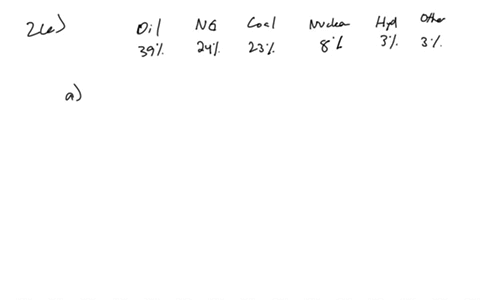 2(a) Oil NG Coal Nuclear Hyd Other
39% 24% 23% 8% 3% 3%
a)